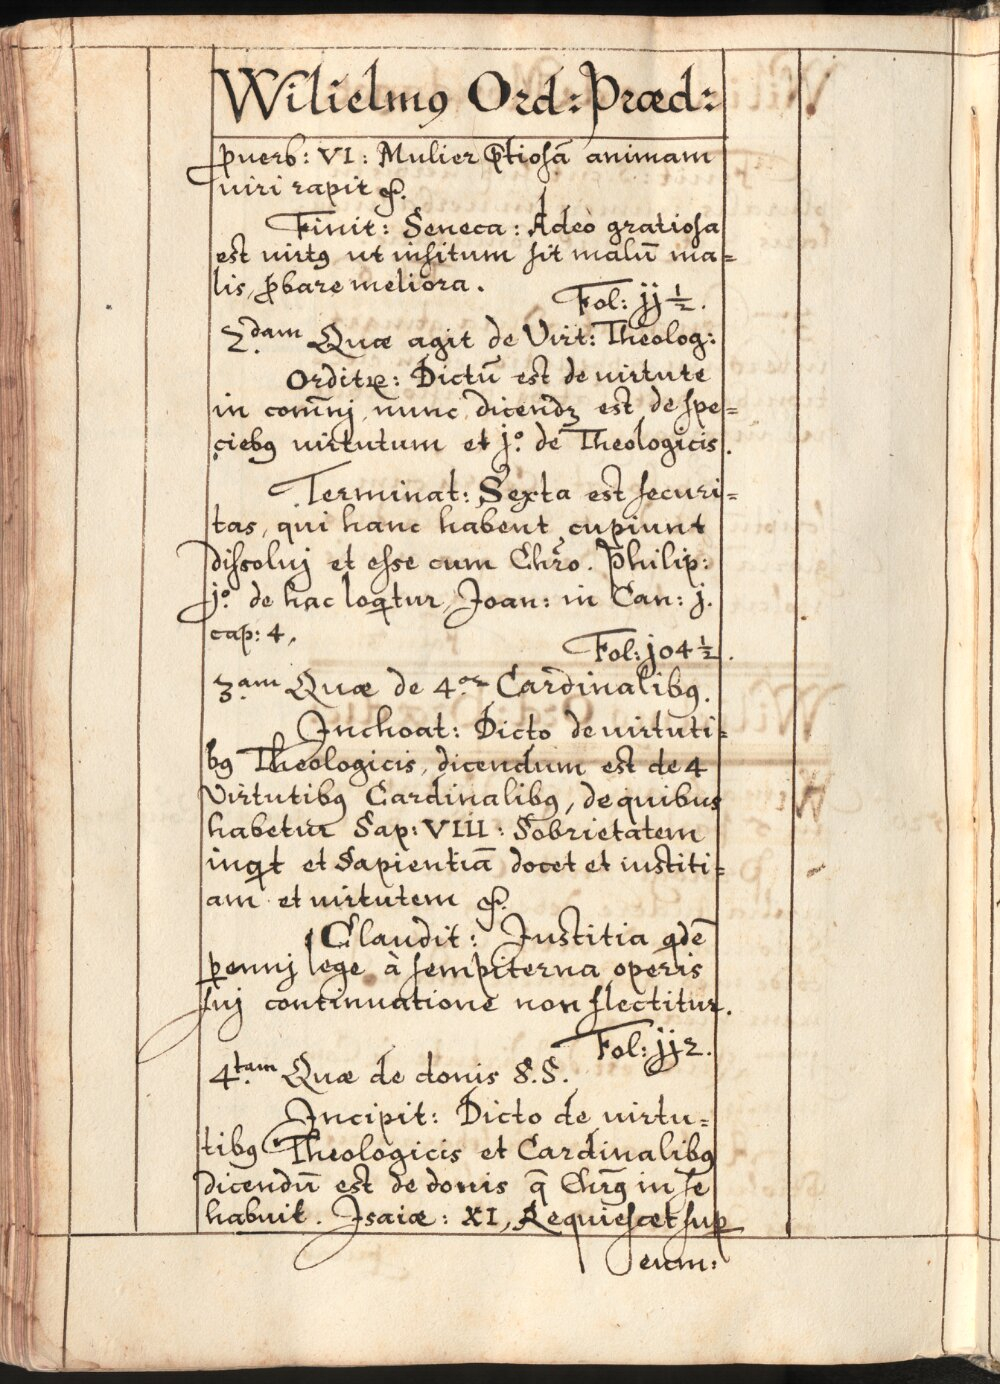 Wilielmꝰ Ord: Præd:
ꝓuerb: VI: Mulier p̄tiosā animam
uiri rapit &.
Finit: Seneca: Adeò gratiosa
est uirtꝰ ut insitum sit malū ma=
lis, ꝓbare meliora.
Fol: jj ½.
2.dam Quæ agit de Virt: Theolog:
Orditꝛ: Dictū est de uirtute
in com̄nj nunc dicendꝫ est de spe=
ciebꝰ uirtutum et j.º de Theologicis.
Terminat: Sexta est securi=
tas, qui hanc habent cupiunt
dissoluj et esse cum Chr̄o. Philip:
j.º de hac loqͥtur Joan: in Can: j.
cap: 4,
Fol: j04 ½.
3.am Quæ de 4.or Cardinalibꝰ.
Inchoat: Dicto de uirtuti=
bꝰ Theologicis, dicendum est de 4
Virtutibꝰ Cardinalibꝰ, de quibus
habetur Sap: VIII: Sobrietatem
inqͥt et Sapientiā docet et iustiti=
am et uirtutem &.
Claudit: Justitia qͥdē
ꝑennj lege à sempiterna operis
suj continuatione non flectitur.
Fol: jj2.
4.tam Quæ de donis S.S.
Incipit: Dicto de uirtu=
tibꝰ Theologicis et Cardinalibꝰ
dicendū est de donis q̄ Chr̄ꝰ in se
habuit. Isaiæ: XI, Requiescet suꝑ
eum: